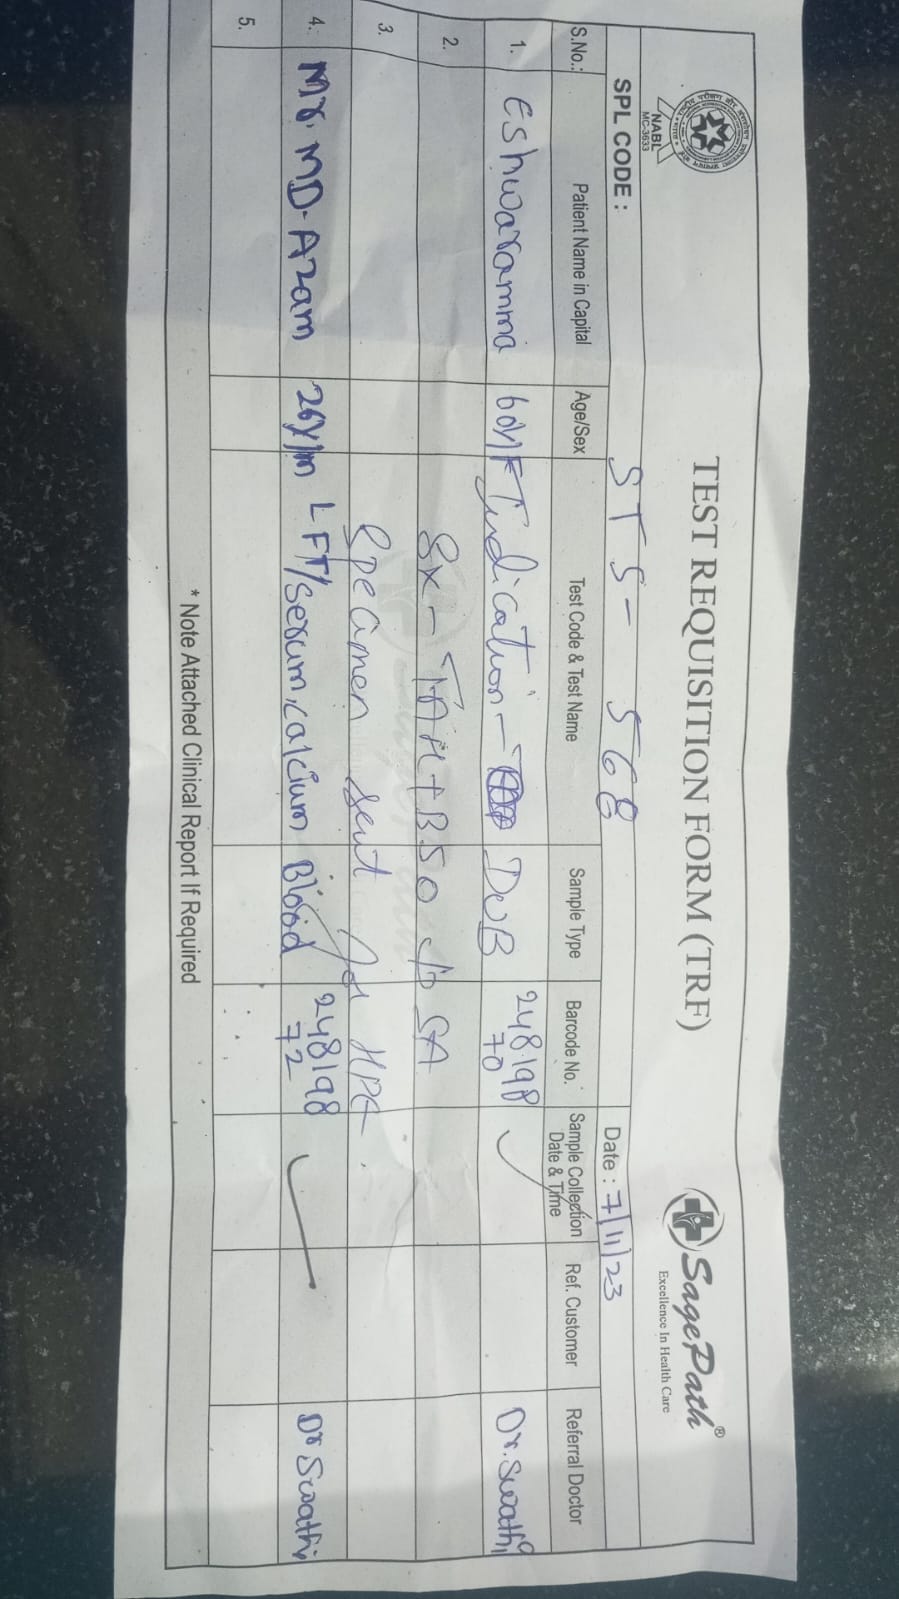 NABL
MC-3633
TEST REQUISITION FORM (TRF)
SagePath®
Excellence In Health Care
SPL CODE : STS- 568
Date : 7/11/23
S.No.: Patient Name in Capital Age/Sex Test Code & Test Name Sample Type Barcode No. Sample Collection Date & Time Ref. Customer Referral Doctor
1. Eshwaramma 60y/F Indication- DUB 24819870 Dr. Swathi
2. Sx- TAH+BSO SA
3. Specimen sent for HPE.
4. Mr. MD. Azam 26y/m LFT/Serum.calcium Blood 24819872 Dr Swathi
5.
* Note Attached Clinical Report If Required